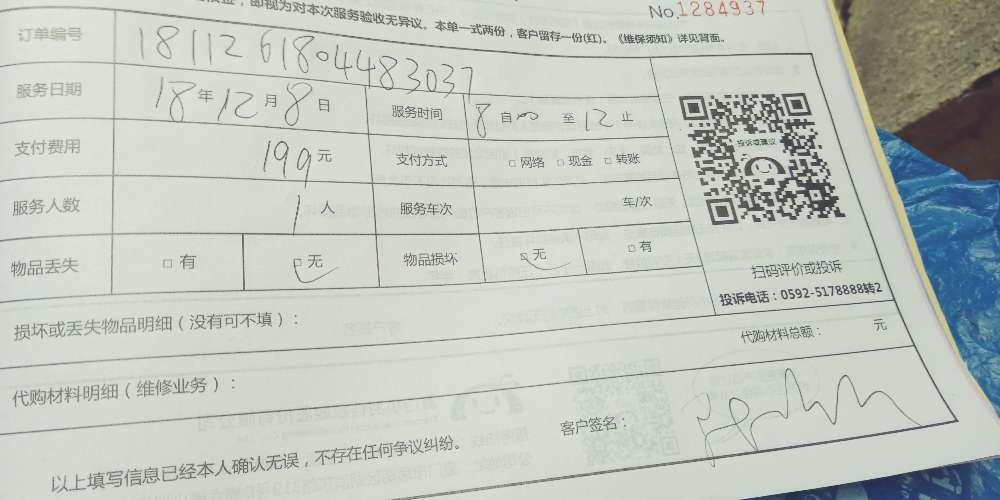 ，即视为对本次服务验收无异议。本单一式两份，客户留存一份(红)。《维保须知》详见背面。
No.1284937
订单编号 181126180448303​7
服务日期 18年12月8日 服务时间 8自 至12止
支付费用 199元 支付方式 □网络 □现金 □转账
服务人数 1人 服务车次 车/次
物品丢失 □有 □无 物品损坏 □无 □有
投诉或建议
扫码评价或投诉
投诉电话：0592-5178888转2
损坏或丢失物品明细（没有可不填）：
代购材料总额： 元
代购材料明细（维修业务）：
客户签名：
以上填写信息已经本人确认无误，不存在任何争议纠纷。